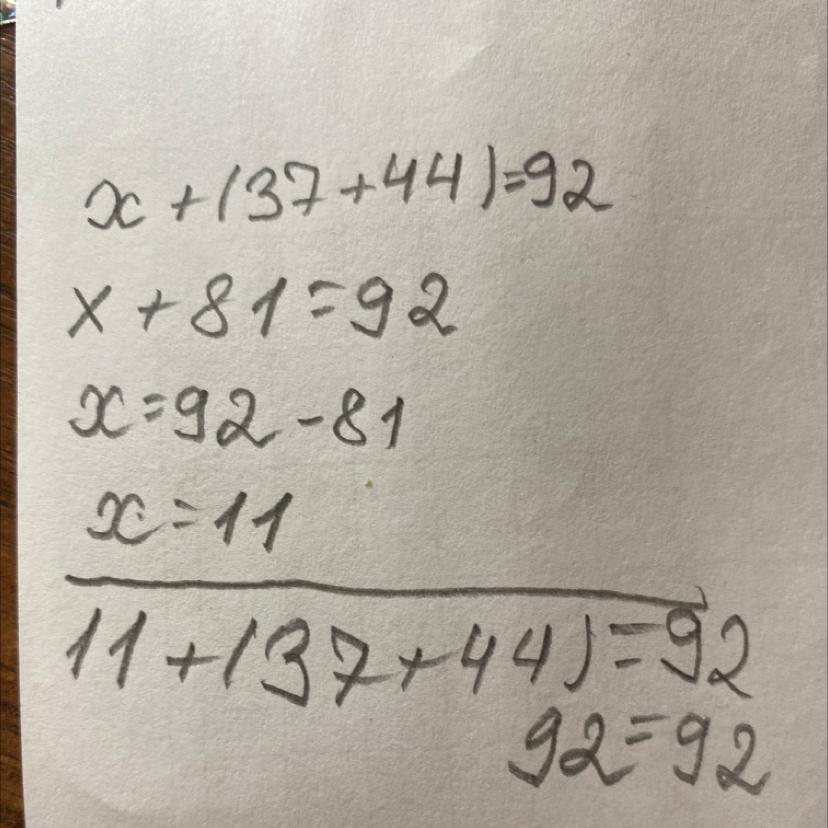 x + (37 + 44) = 92
x + 81 = 92
x = 92 - 81
x = 11
11 + (37 + 44) = 92
92 = 92